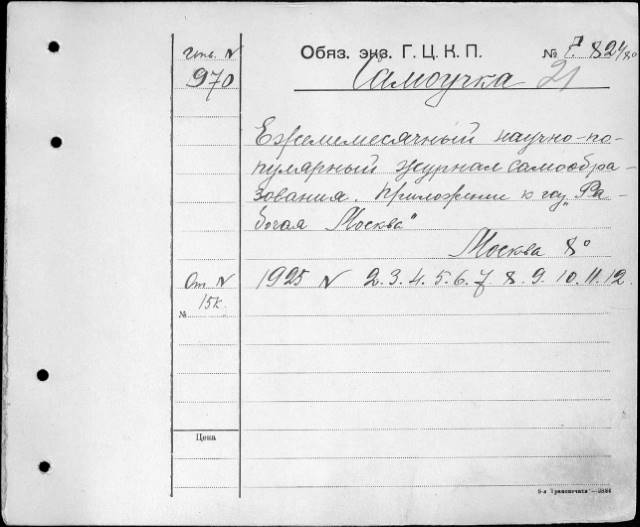 Инв. N
970
Обяз. экз. Г. Ц. К. П.
№ 7. 824/80
Самоучка 21
Ежемемесячный научно-по-
пулярный журнал самообра-
зования. Приложение к газ. „Ра-
бочая Москва"
Москва 8°
От N
15к.
№
1925 N 2.3.4.5.6.7.8.9.10.11.12.
Цена